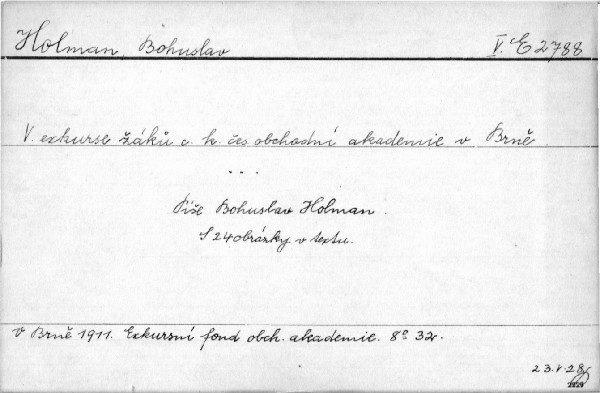 Holman, Bohuslav V. E 2788
V. exkurse žáků c. k. čes. obchodní akademie v Brně
...
Píše Bohuslav Holman.
S 24 obrázky v textu.
V Brně 1911. Exkursní fond obch. akademie. 8° 32.
23.V.28